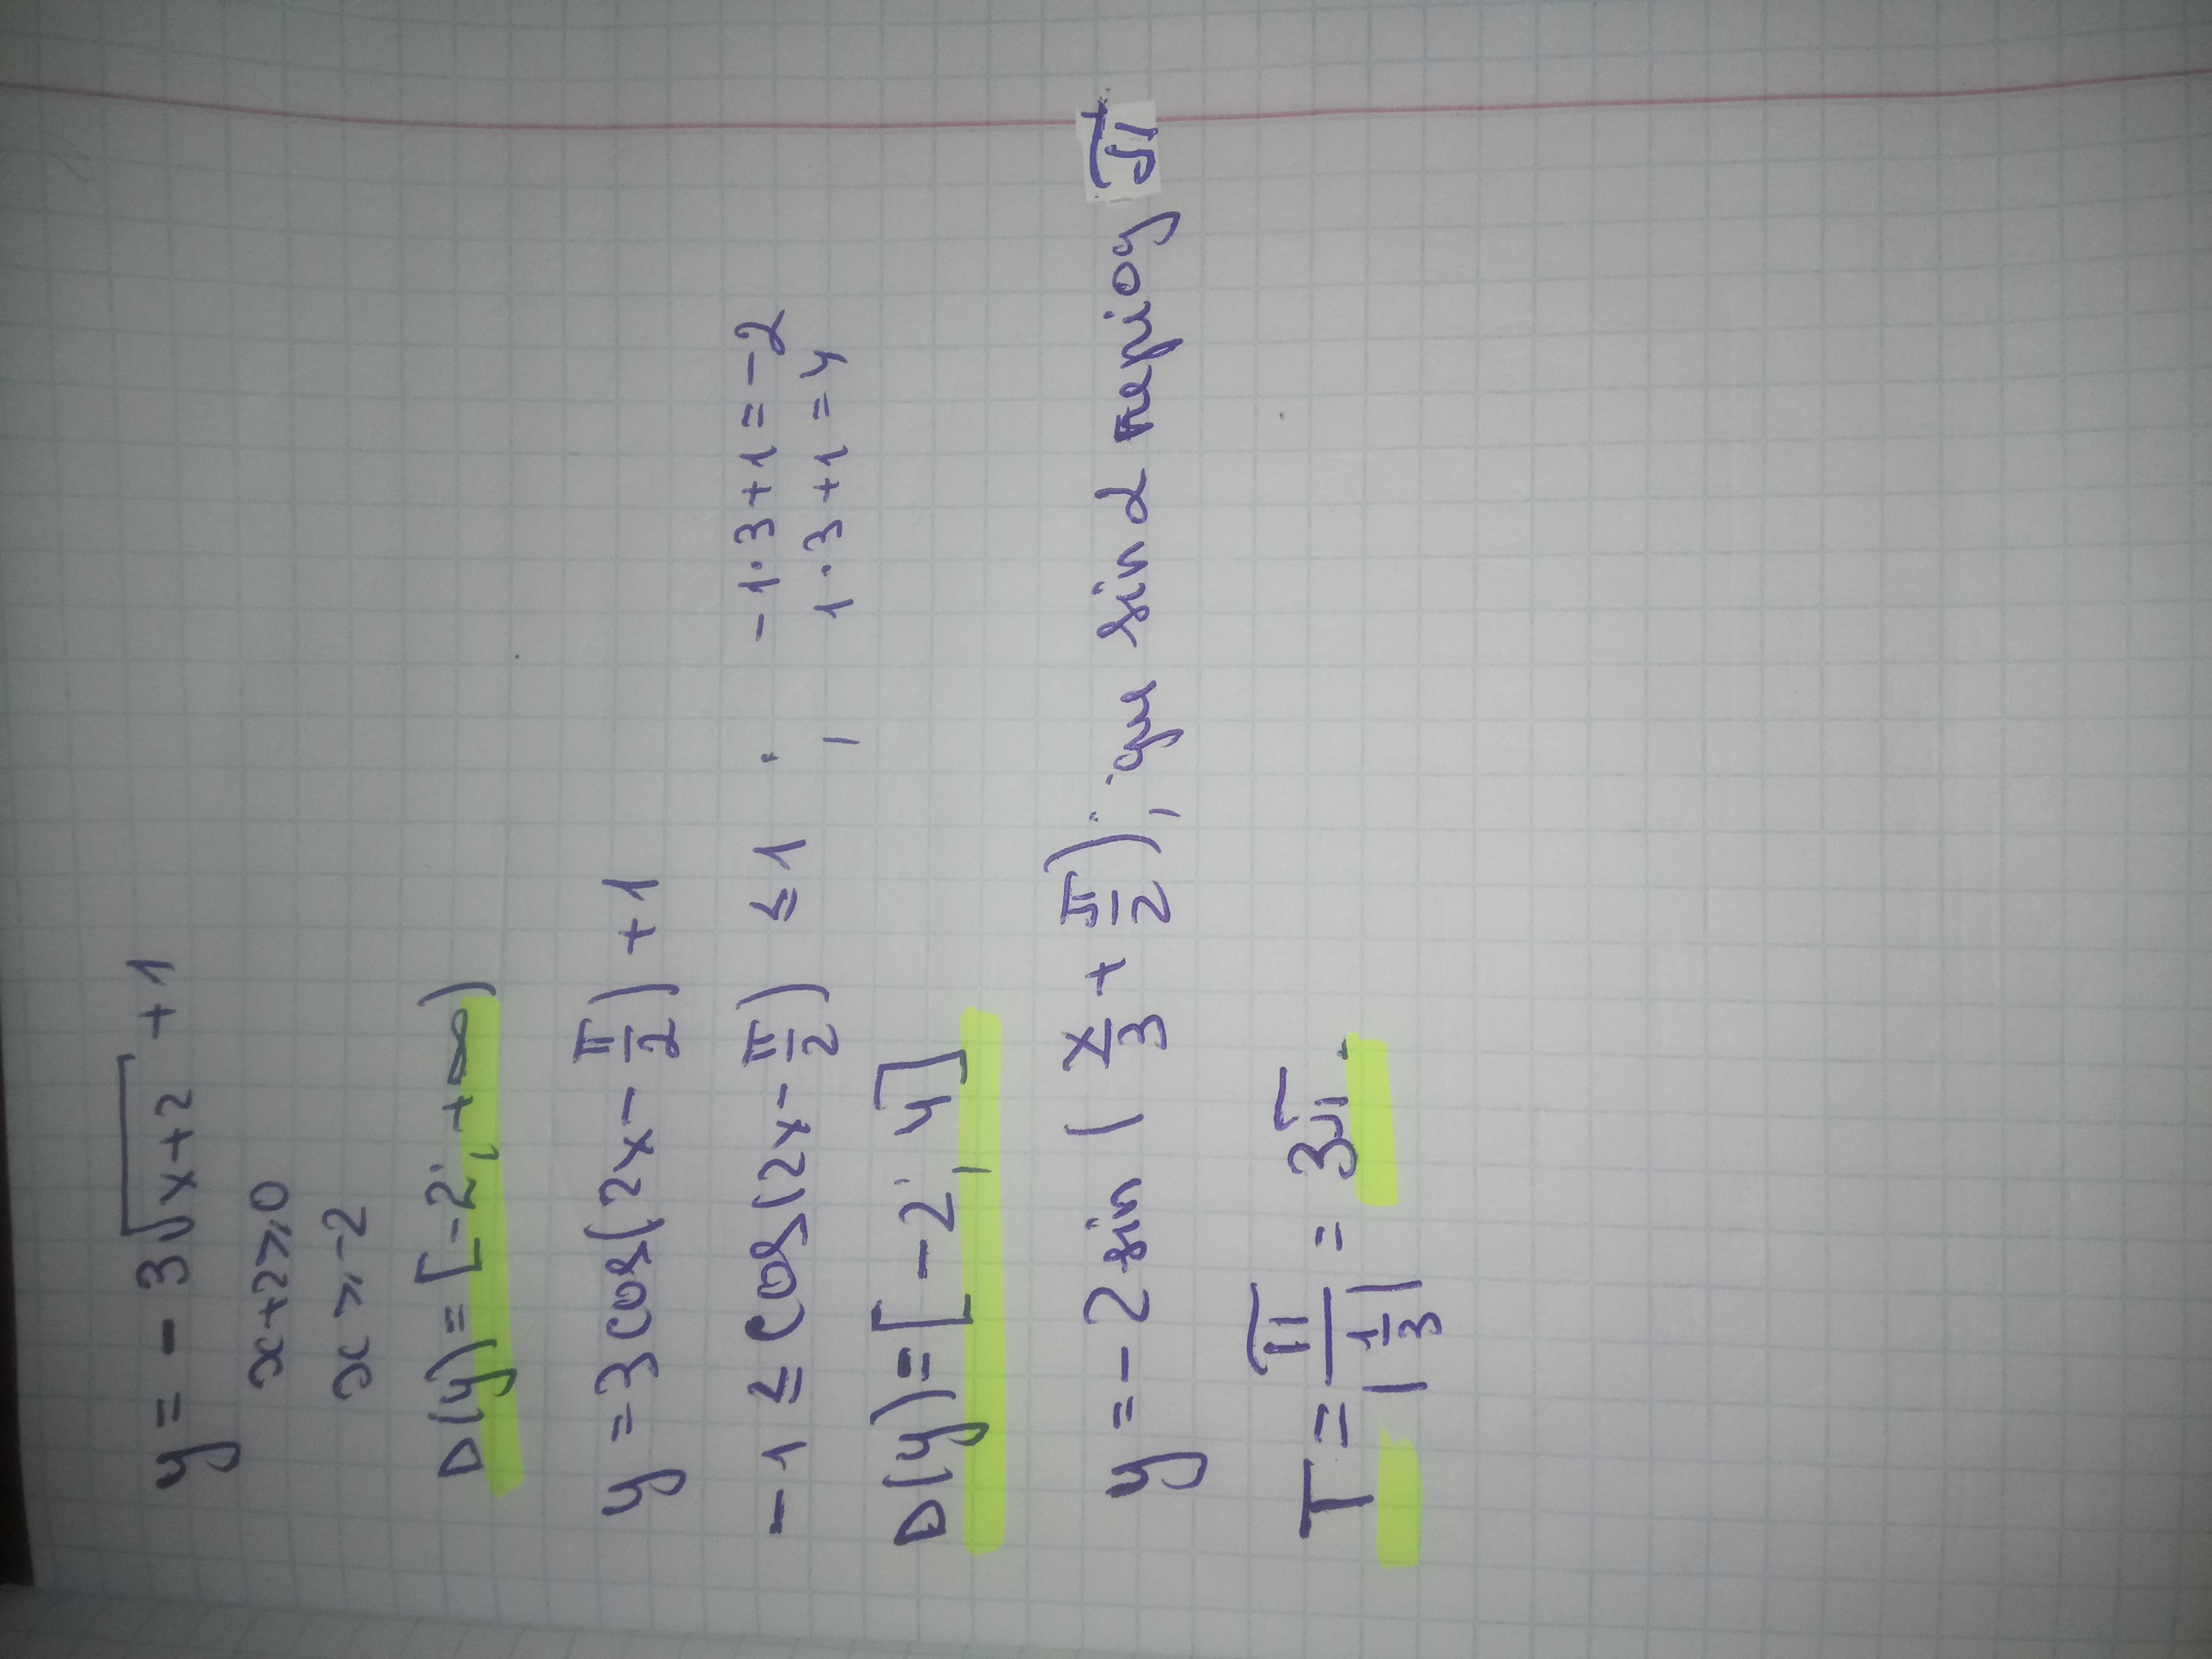 y = -3√(x+2) + 1
x+2 ⩾ 0
x ⩾ -2
D(y) = [-2; +∞)
y = 3 cos(2x - π/2) + 1
-1 ≤ cos(2x - π/2) ≤ 1 ; -1·3+1 = -2
1·3+1 = 4
D(y) = [-2; 4]
y = -2 sin (x/3 + π/2); для sin α період π
T = π/|1/3| = 3π.